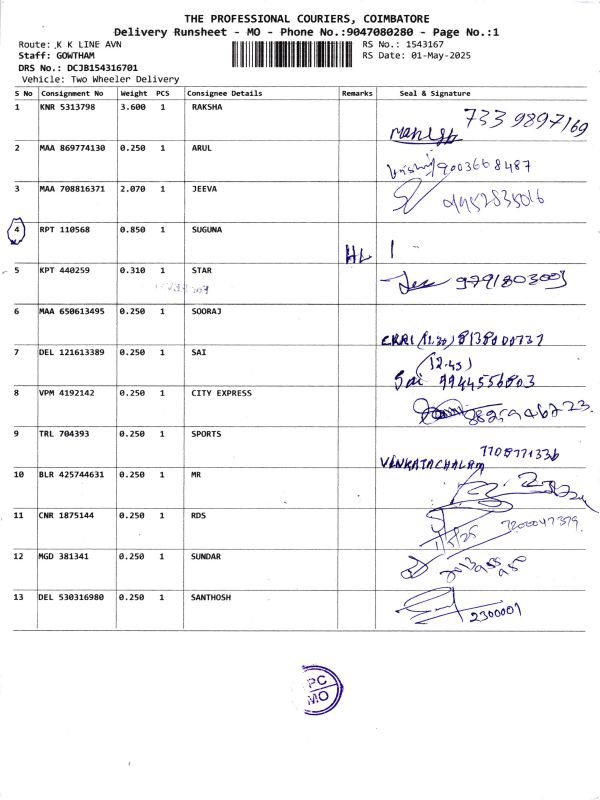 THE PROFESSIONAL COURIERS, COIMBATORE
Delivery Runsheet - MO - Phone No.:9047080280 - Page No.:1
Route: K K LINE AVN
RS No.: 1543167
Staff: GOWTHAM
RS Date: 01-May-2025
DRS No.: DCJB154316701
Vehicle: Two Wheeler Delivery
S No Consignment No Weight PCS Consignee Details Remarks Seal & Signature
1 KNR 5313798 3.600 1 RAKSHA 733 9897169
2 MAA 869774130 0.250 1 ARUL 9003668487
3 MAA 708816371 2.070 1 JEEVA 9952835016
4 RPT 110568 0.850 1 SUGUNA HL
5 KPT 440259 0.310 1 STAR 9791803003
6 MAA 650613495 0.250 1 SOORAJ 8138000737
7 DEL 121613389 0.250 1 SAI (12.45)
Sai 9944556803
8 VPM 4192142 0.250 1 CITY EXPRESS
9 TRL 704393 0.250 1 SPORTS 7708771336
VENKATACHALAM
10 BLR 425744631 0.250 1 MR
11 CNR 1875144 0.250 1 RDS 7200047379.
1/5/25
12 MGD 381341 0.250 1 SUNDAR
13 DEL 530316980 0.250 1 SANTHOSH
2300001
PC
MO